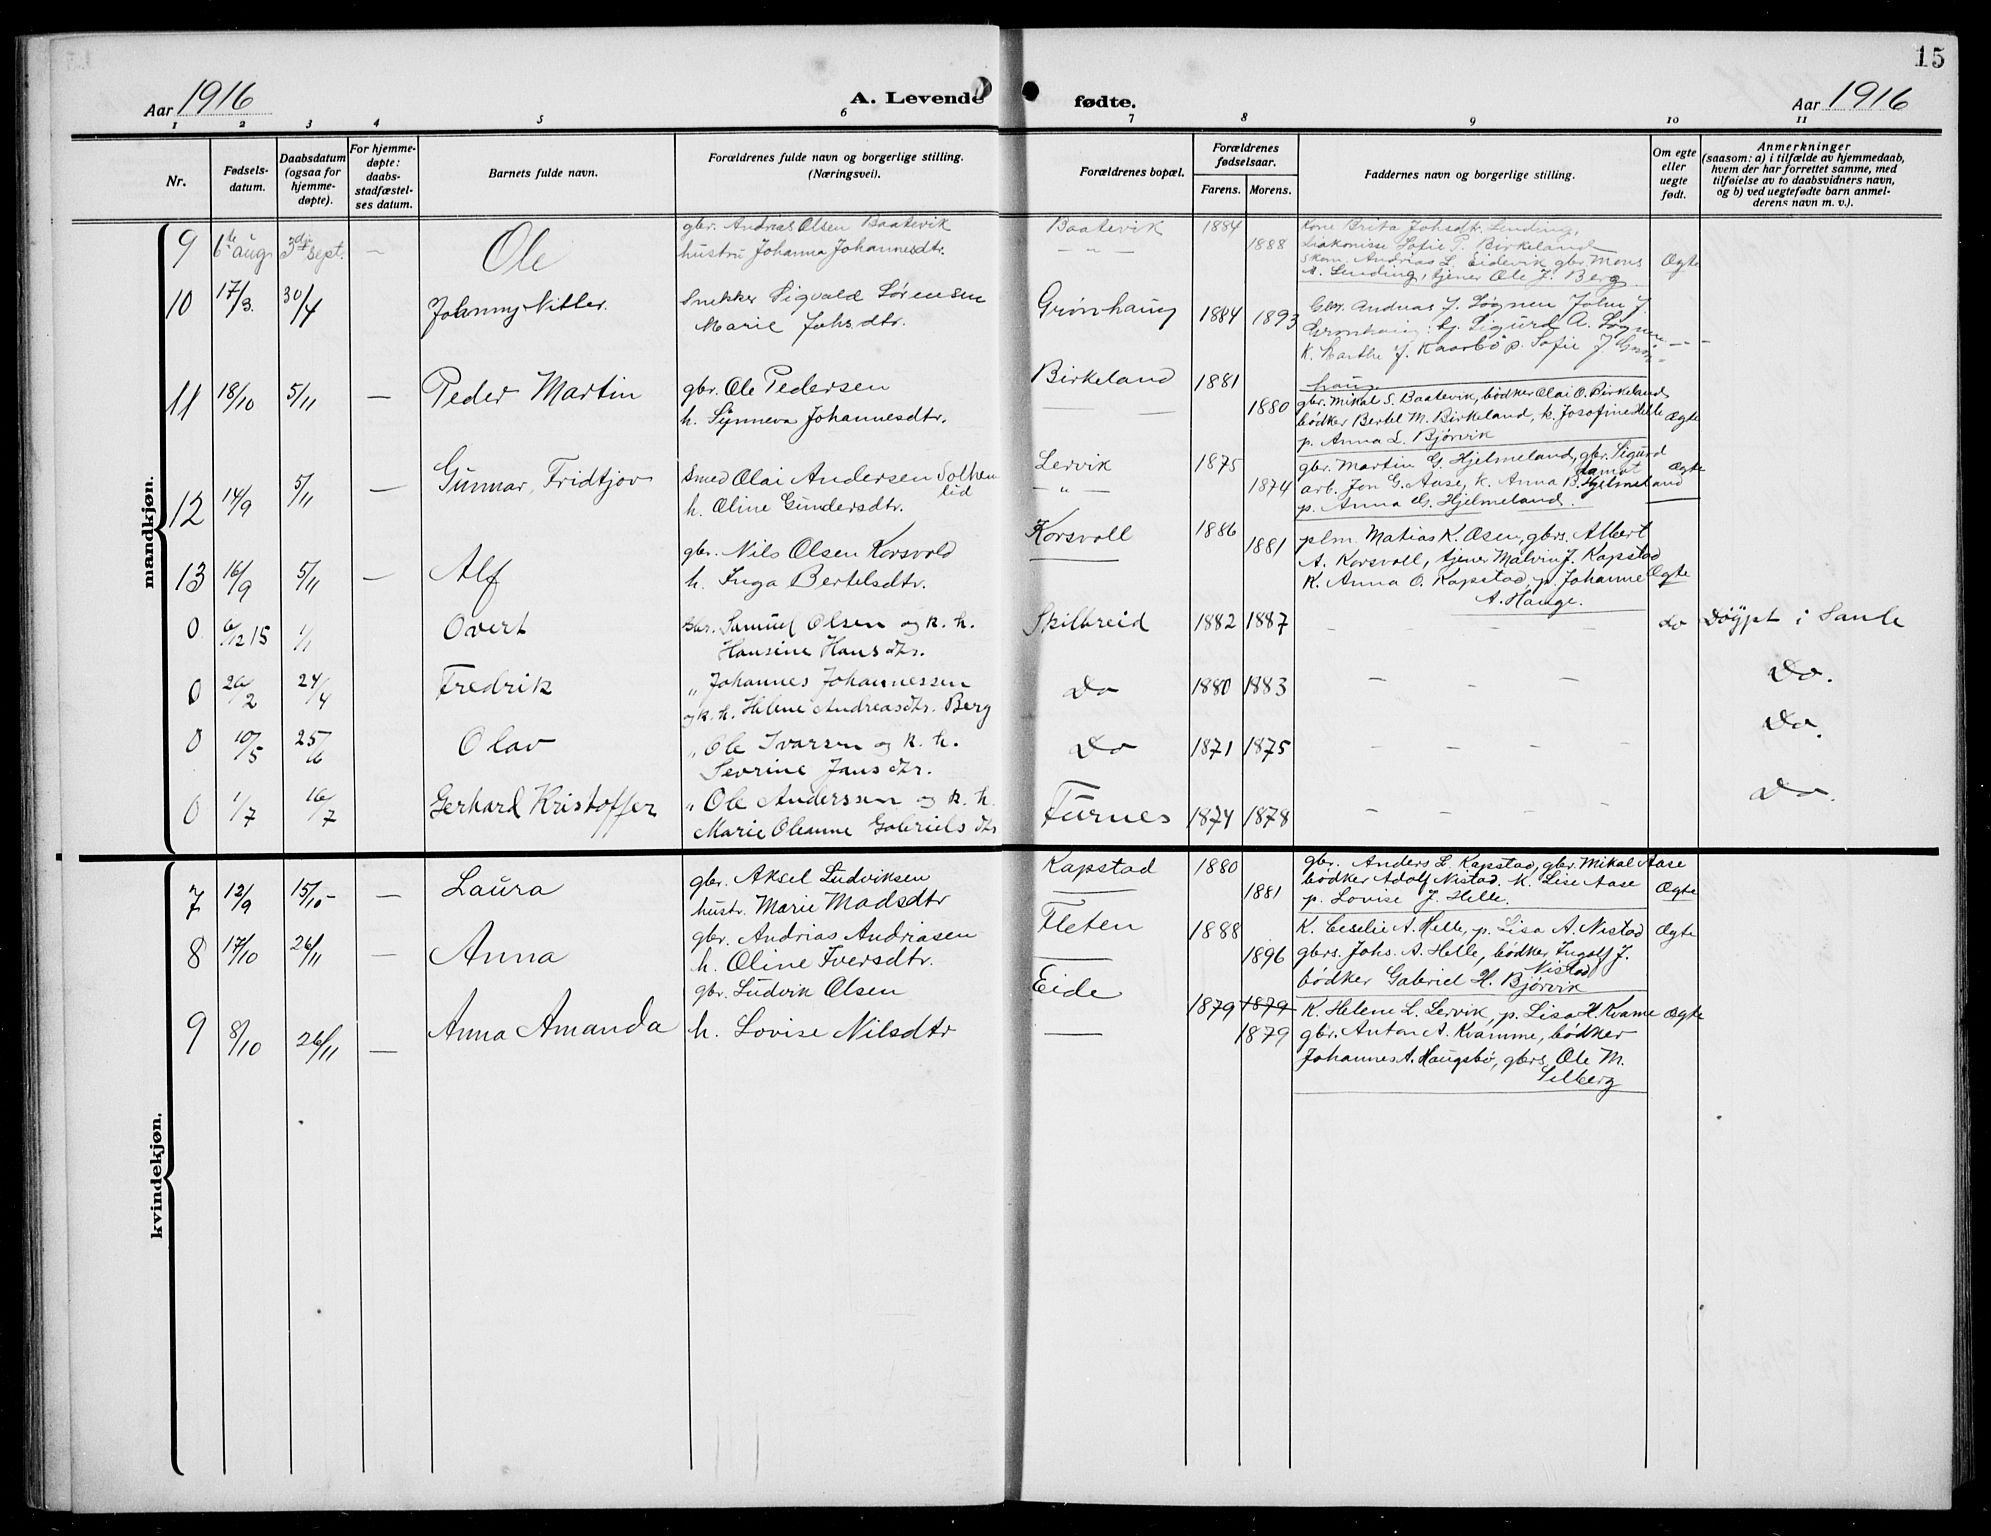 15
Aar 1916
A. Levende fødte.
Aar 1916
1 2 3 4 5 6 7 8 9 10 11
Nr.
Fødsels-
datum.
Daabsdatum
(ogsaa for
hjemme-
døpte).
For hjemme-
døpte:
daabs-
stadfæstel-
ses datum.
Barnets fulde navn.
Forældrenes fulde navn og borgerlige stilling.
(Næringsvei).
Forældrenes bopæl.
Forældrenes
fødselsaar.
Farens. Morens.
Faddernes navn og borgerlige stilling.
Om egte
eller
uegte
født.
Anmerkninger
(saasom: a) i tilfælde av hjemmedaab,
hvem der har forrettet samme, med
tilføielse av to daabsvidners navn,
og b) ved uegtefødte barn anmel-
derens navn m. v.).
mandkjøn.
9 6te aug 3die sept. — Ole
gbr. Andrias Olsen Baatevik
hustru Johanna Johannesdtr.
Baatevik
— " —
1884
1888
Kone Brita Johsdtr. Lending,
diakonisse Sofie P. Birkeland
skom. Andrias L. Eidevik gbr. Mons
A. Lending, tjener Ole J. Berg
Ægte
10 17/3. 30/4 Johanny Nitter.
Snekker Sigvald Sørensen
Marie Johs.dtr.
Grønhaug 1884 1893
Gbr. Andreas J. Søgnen John J.
Grønhaug: tj. Sigurd A. Søgnen
K. Marthe J. Kaarbø p. Sofie J Grøn-
haug
— " —
11 18/10 5/11 — Peder Martin
gbr. Ole Pedersen
h. Synneva Johannesdtr.
Birkeland
1881
1880
gbr. Mikal S. Baatevik, bødker Olai O. Birkeland
bødker Bertel M. Birkeland, k. Josofine Helle
p. Anna L. Bjørvik
Ægte
12 14/9 5/11 — Gunnar Fridtjov
Smed Olai Andersen Solhen
lid
h. Oline Gundersdtr.
Lervik
— " —
1875
1874
gbr. Martin G. Hjelmeland, gbr. Sigurd
arb. Jon G. Aase, k. Anna B. Hjelmeland
p. Anna G. Hjelmeland.
Ægte
13 16/9 5/11 — Alf
gbr. Nils Olsen Korsvold
h. Inga Bertelsdtr.
Korsvoll
1886
1881
plm. Matias K. Osen, gbrs. Albert
A. Korsvoll, tjener Malvin J. Kapstad
K. Anna O. Kapstad, p. Johanne
A. Hauge.
Ægte
0 6/12 15 1/1 Overt
Gbr. Samuel Olsen og k. h.
Hansine Hansdtr.
Skilbreid 1882 1887 — — — do Døypt i Sande
0 20/2 24/4 Fredrik
" Johannes Johannessen
og k. h. Helene Andreasdtr. Berg
Do 1880 1883 — — — Do.
0 10/5 25/6 Olav
" Ole Ivarsen og k. h.
Sevrine Jansdtr.
Do 1871 1875 — — — Do.
0 1/7 16/7 Gerhard Kristoffer
" Ole Anderssen og k. h.
Marie Oleanne Gabriels dtr
Furnes 1874 1878 — — — Do.
kvindekjøn.
7 12/9 15/10 — Laura
gbr. Aksel Ludviksen
hustr. Marie Madsdtr
Kapstad
1880
1881
gbr. Anders L. Kapstad, gbr. Mikal Aase
bødker Adolf Nistad. K. Lise Aase
p. Lovise J. Helle.
Ægte
8 17/10 26/11 — Anna
gbr. Andrias Andriasen
h. Oline Iversdtr.
Fleten
1888
1896
K. Ceselie A. Helle, p. Lisa A. Nistad
gbrs. Johs. A. Helle, bødker Ingolf J.
Nistad
bødker Gabriel H. Bjørvik
Ægte
9 8/10 26/11 — Anna Amanda
gbr. Ludvik Olsen
h. Lovise Nilsdtr
Eide
1879 1879
1879
K. Helene L. Lervik, p. Lisa H. Kvame
gbr. Anton A. Kvamme, bødker
Johannes A. Haugsbø, gbrs. Ole M.
Selberg
Ægte